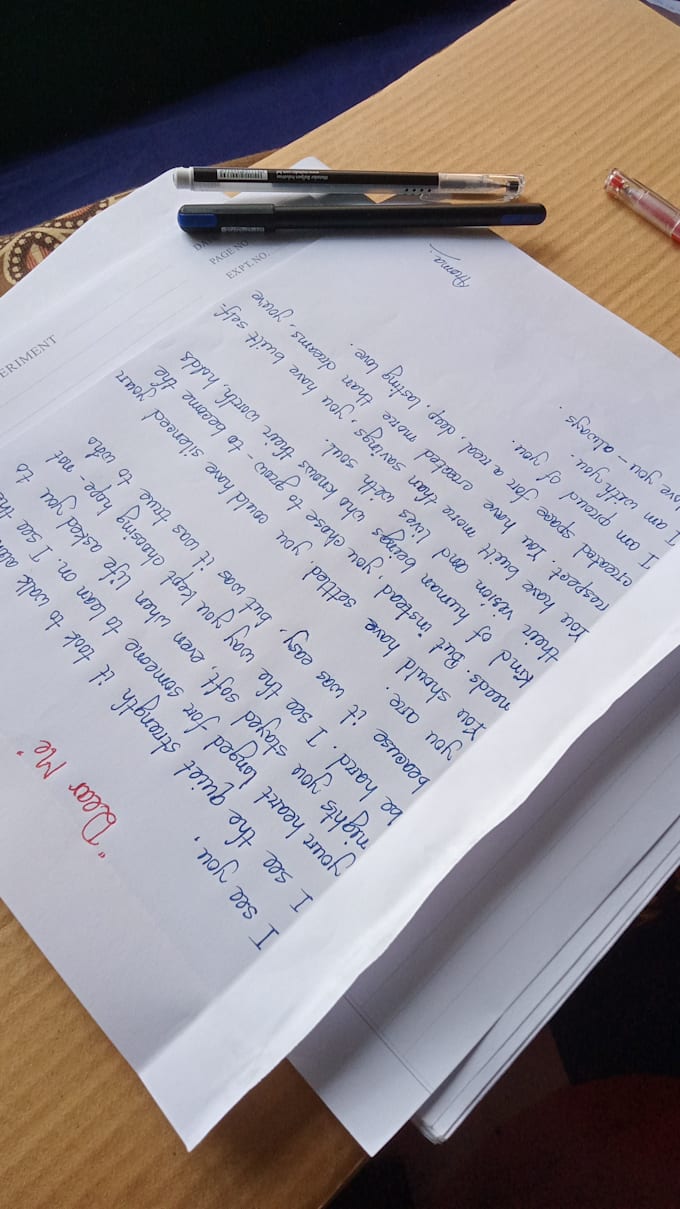 "Dear Me"
I see you,
I see the quiet strength it took to walk alon
your heart longed for someone to lean on. I see the
nights you stayed soft, even when life asked you to
be hard. I see the way you kept choosing hope - not
beacuse it was easy, but was it was true to who
you are.
You should have settled you could have silenced your
needs. But instead, you chose to grow - to become the
kind of human beings who knows their worth, holds
their vision and lives with soul.
You have built more than savings, you have built self-
respect. You have created more than dreams, you're
created space for a real, deep, lasting love.
I am proud of you.
I am with you.
love you - always.
ERIMENT
DA
PAGE NO
EXPT. NO.